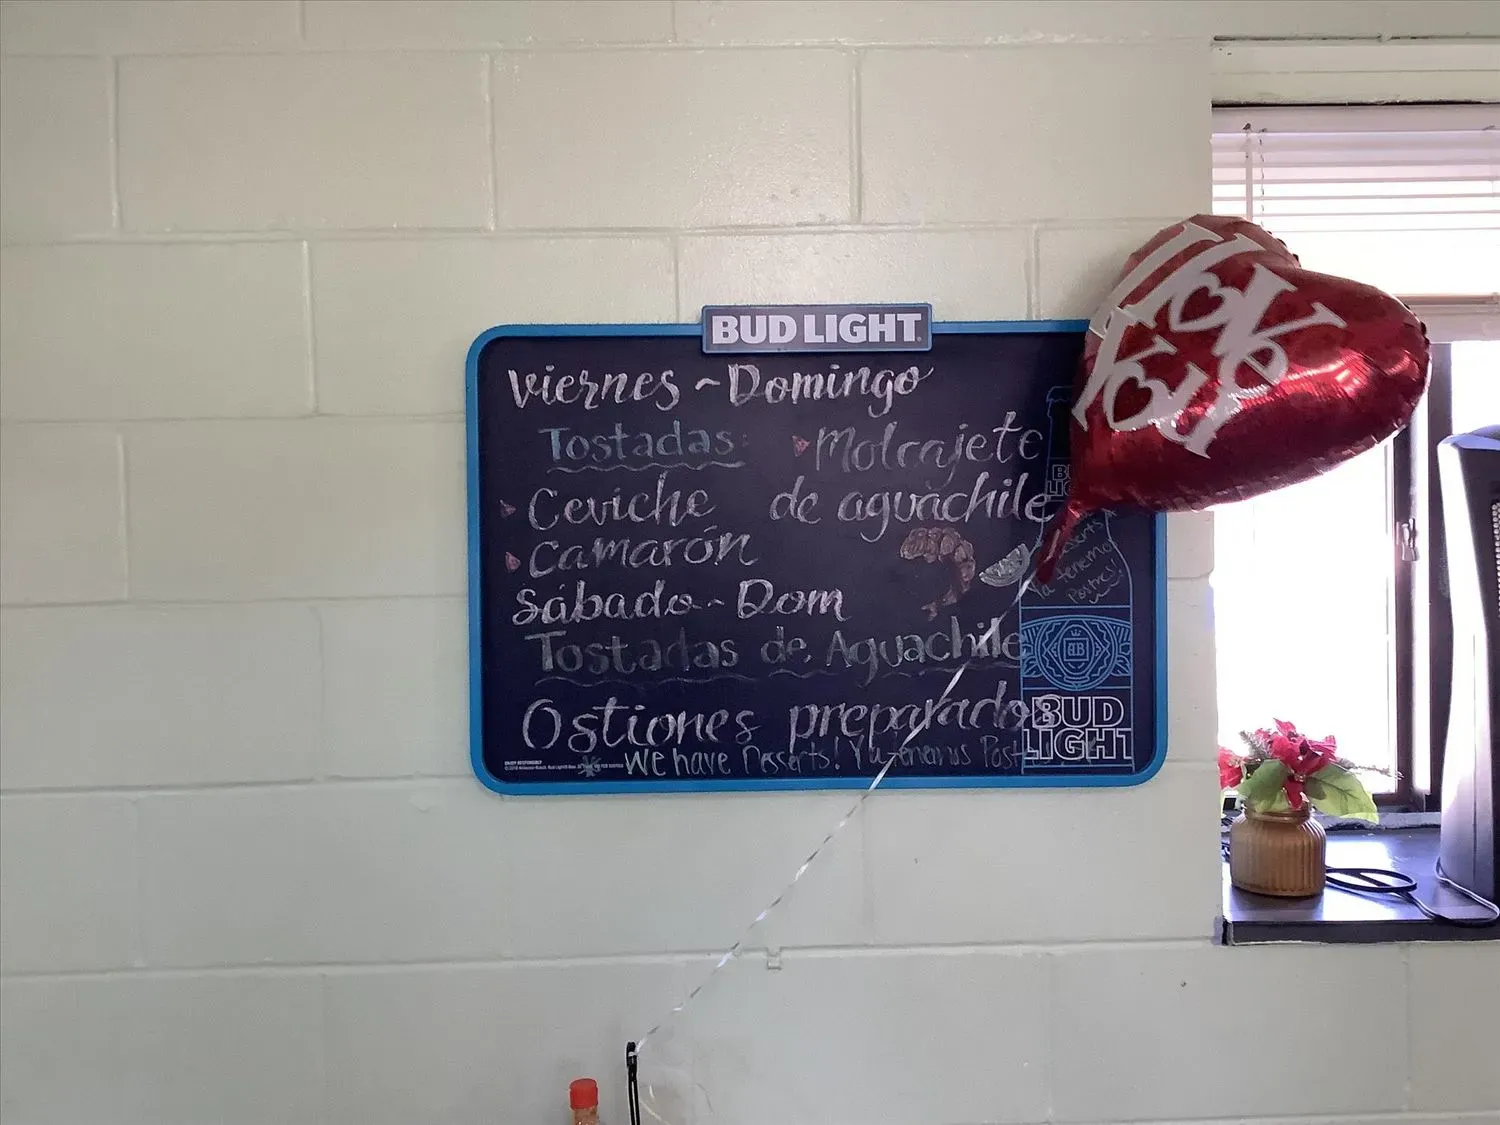 BUD LIGHT
viernes ~ Domingo
Tostadas:
Ceviche
Camarón
Molcajete
de aguachile
Sábado - Dom
Tostadas de Aguachile
Ostiones preparados
We have Desserts! Ya tenemos
Ya tenemos
Postres!
BUD
LIGHT
I LOVE
YOU
ENJOY RESPONSIBLY